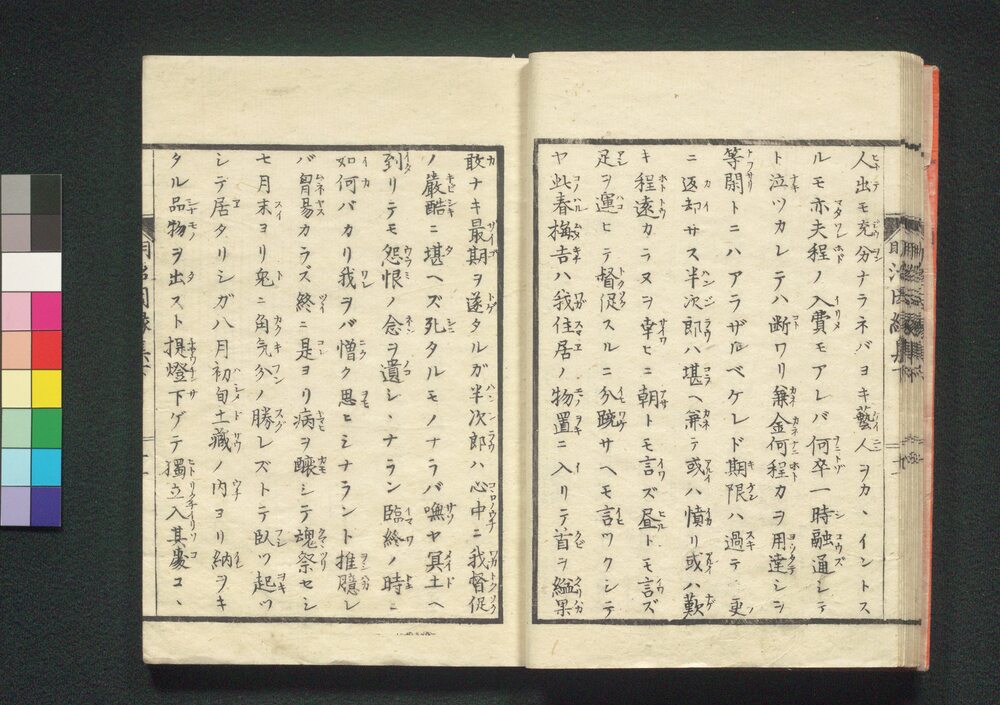 人出モ充分ナラネバヨキ藝人ヲカヽイントス
ルモ亦夫程ノ入費モアレバ何卒一時融通シテ
ト泣ツカレテハ断ワリ兼金何程カヲ用達シヲ
等閑トニハアラザルベケレド期限ハ過テ更
ニ返却サス半次郎ハ堪ヘ兼テ或ハ憤リ或ハ歎
キ程遠カラヌヲ幸ヒニ朝トモ言ズ昼トモ言ズ
足ヲ運ヒテ督促スルニ分疏サヘモ言ツクシテ
ヤ此春梅吉ハ我住居ノ物置ニ入リテ首ヲ縊果
敢ナキ最期ヲ遂タルガ半次郎ハ心中ニ我督促
ノ嚴酷ニ堪ヘズ死タルモノナラバ嘸ヤ冥土ヘ
到リテモ怨恨ノ念ヲ遺シヽナラン臨終ノ時ニ
如何バカリ我ヲバ憎ク思ヒシナラント推臆レ
バ胷昜カラズ終ニ是ヨリ病ヲ醸シテ魂祭セシ
七月末ヨリ兎ニ角気分ノ勝レズトテ臥ツ起ツ
シテ居タリシガ八月初旬土藏ノ内ヨリ納ヲキ
タル品物ヲ出スト提燈下ゲテ獨立入其處コヽ